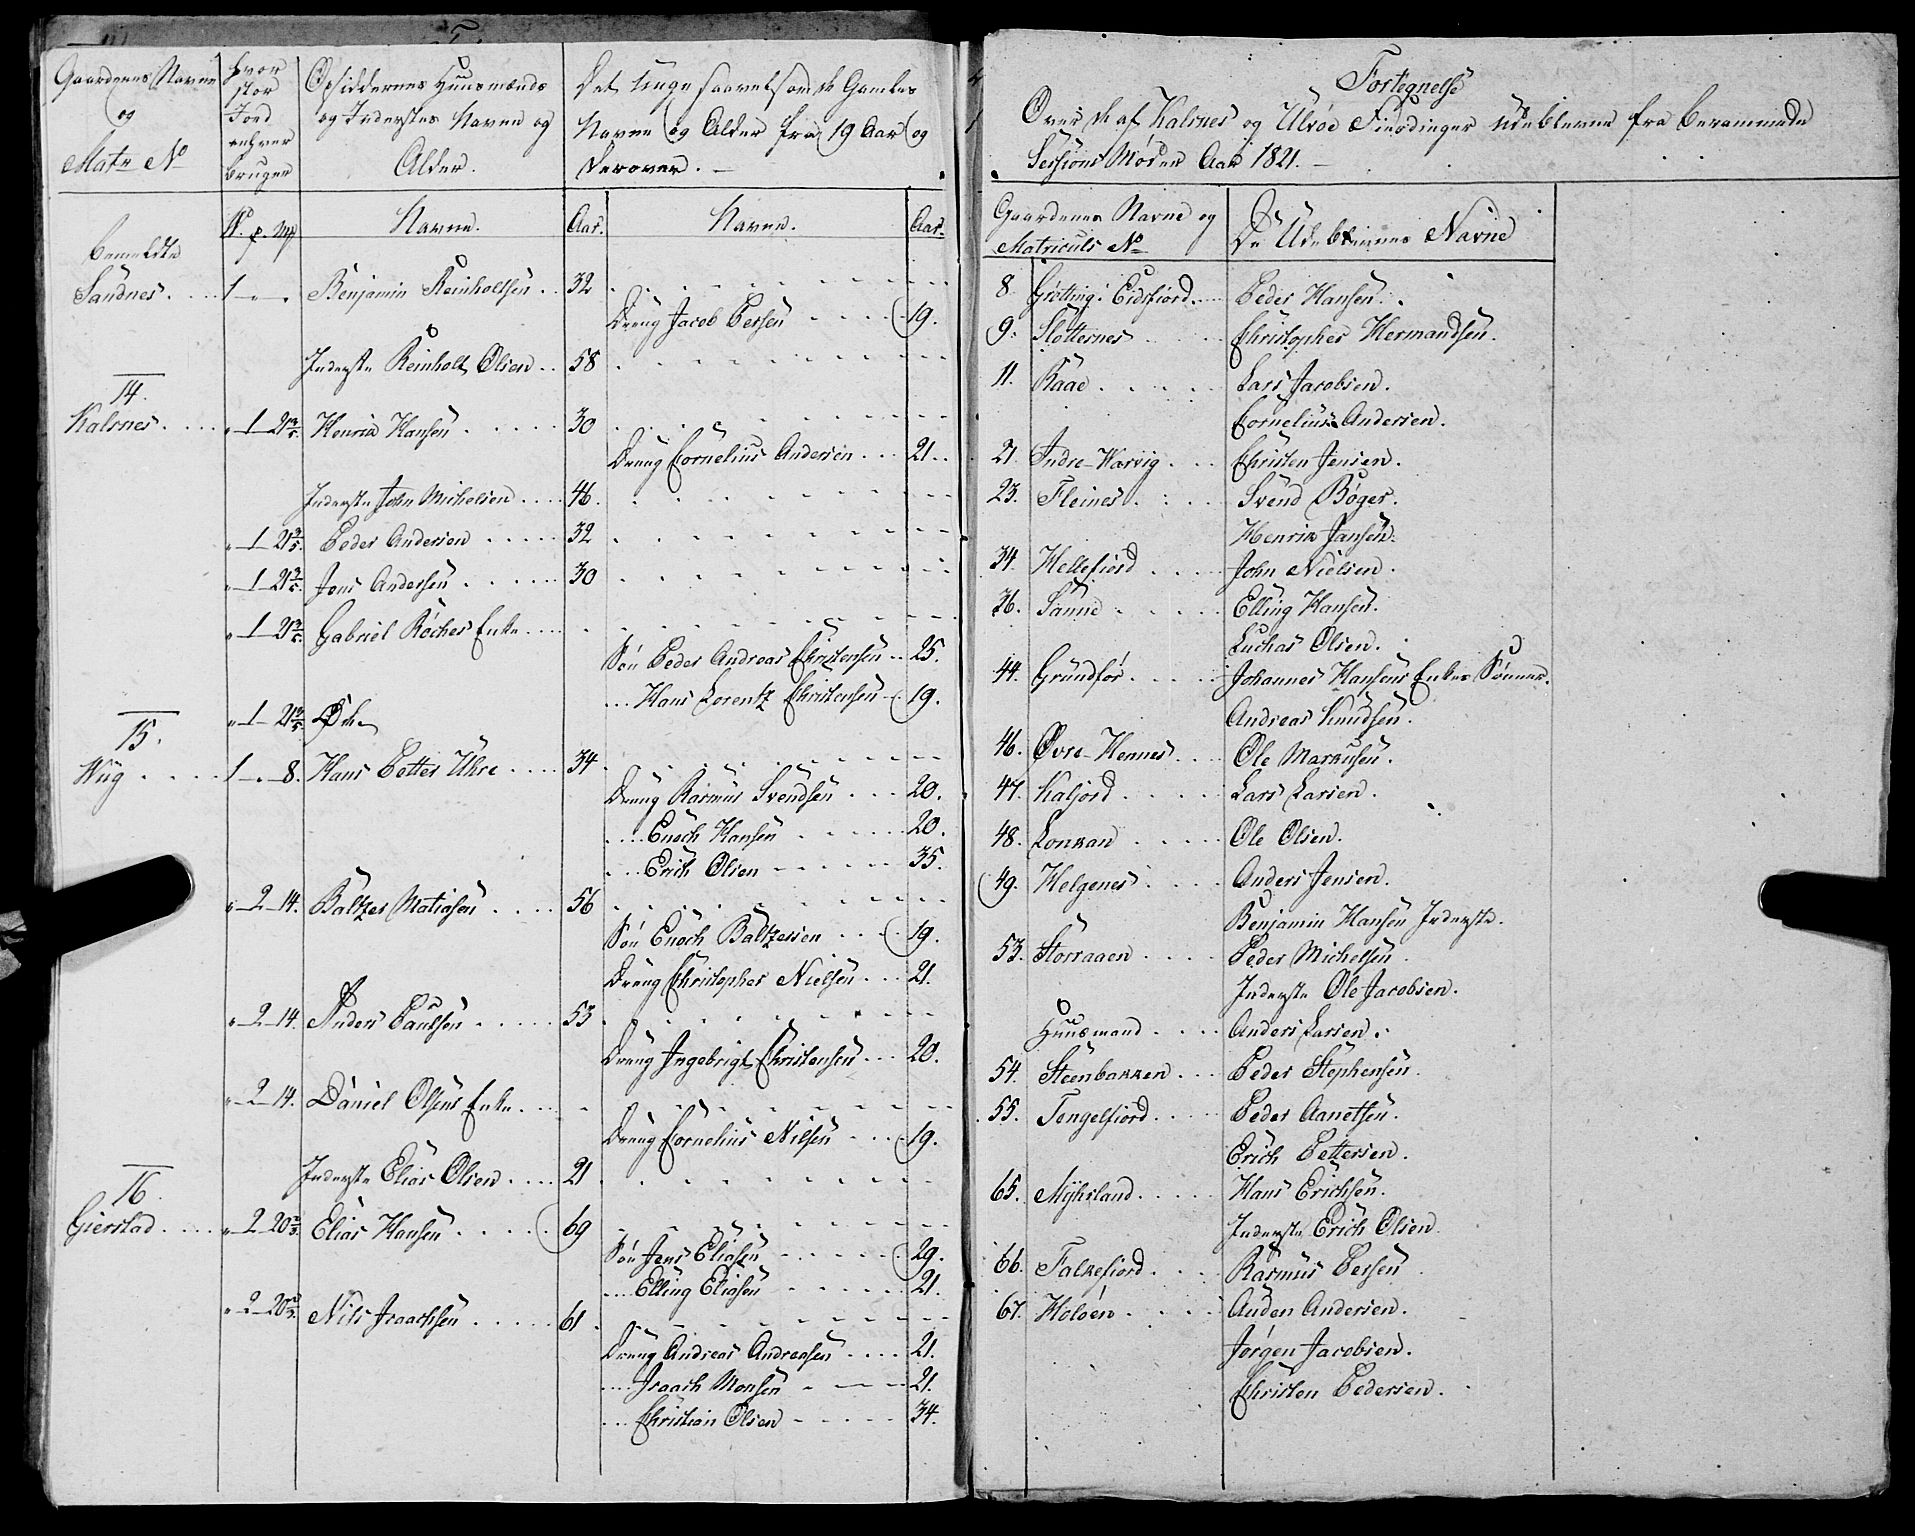 Gaardenes Navne og Matr No
Hvor stor Jord enhver bruger
Opsiddernes Huusmænds og Inderstes Navne og Alder.
Det Unge saavelsom de Gamles Navne og Alder fra 19 Aar og derover.
Navne. Aar. Navne. Aar.
bemeldte
Sandnes. 1 Benjamin Reinholtsen 32
Dreng Jacob Persen 19.
Inderste Reinholt Olsen 58
14.
Kalsnes. 1-21 3/5. Henrik Hansen 30
Dreng Cornelius Andersen 21.
Inderste John Michelsen 46
1-21 3/5. Peder Andersen 32
1-21 3/5. Jens Andersen 30
1-21 3/5. Gabriel Röches Enke
Søn Peder Andreas Christensen 25.
Hans Lorentz Christensen 19.
1-21 3/5. Øde
15.
Wiig 1-"-8. Hans Petter Uhre 34
Dreng Rasmus Svendsen 20.
Enoch Hansen 20.
Erich Olsen 35.
2-14. Baltzer Matiasen 56
Søn Enoch Baltzersen 19.
Dreng Christopher Nielsen 21.
2-14. Anders Paulsen 53
Dreng Ingebrigt Christensen 20.
2-14. Daniel Olsens Enke
Dreng Cornelius Nilsen 19.
Inderste Elias Olsen 21
16.
Gierstad 2-20 2/3. Elias Hansen 69
Søn Jens Eliasen 29.
Elling Eliasen 21.
2-20 2/3. Nils Isaachsen 61
Dreng Andreas Andreasen 21.
Isaach Monsen 21.
Christian Olsen 34.
Fortegnelse
Over de af Kalsnes og Ulvøe Fierdinger udeblevne fra berammede
Sessions Møder Aar 1821.
Gaardenes Navne og Matriculs No
De Udeblivnes Navne
8 Grøtting i Eidsfiord Peder Hansen.
9. Slotternes Christopher Hermandsen.
11. Raae Lars Jacobsen.
Cornelius Andersen.
21. Indre-Warvig Christen Jensen.
23. Fleines Svend Bøger.
Henrik Jansen.
34. Hellefiord John Nielsen.
36. Sanne Elling Hansen.
Luchas Olsen.
44. Grundfør Johannes Hansens Enkes Sønner.
Andreas Knudsen.
46. Øvre-Hennes Ole Markusen.
47. Kaljord Lars Larsen.
48. Lonkan Ole Olsen.
49. Helgenes Anders Jensen.
Benjamin Hansen Inderste.
53. Storraaen Peder Michelsen.
Inderste Ole Jacobsen.
Huusmand Anders Larsen.
54. Steenbakken Peder Stephensen.
55. Tengelfiord Peder Aanetsen.
Erich Pettersen.
65. Myhrland Hans Erichsen.
Inderste Erich Olsen
66. Falkefiord Rasmus Persen
67. Holøen Auden Andersen.
Jørgen Jacobsen.
Christen Pedersen.